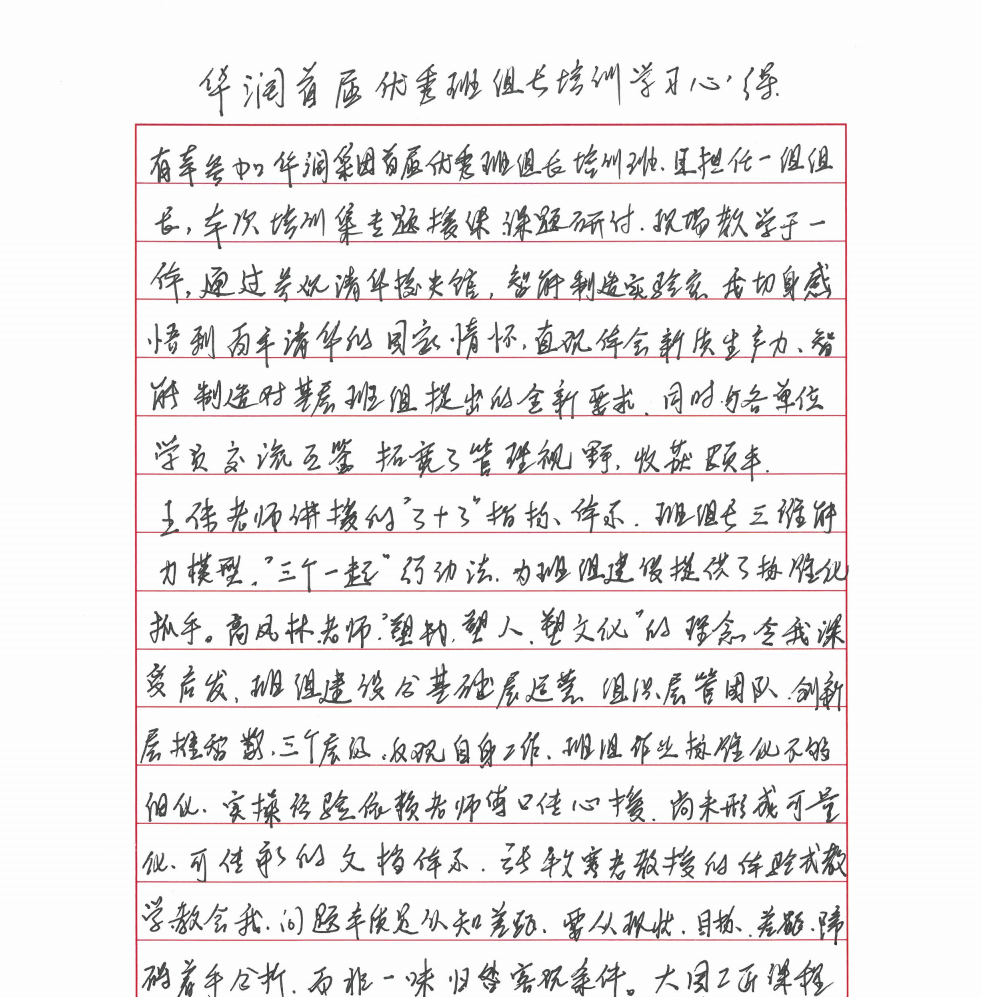 华润首届优秀班组长培训学习心得
有幸参加华润集团首届优秀班组长培训班.且担任一组组
长,本次培训集专题授课 课题研讨.现场教学于一
体,通过参观清华校史馆,智能制造实验室 我切身感
悟到百年清华的国家情怀,直观体会新质生产力、智
能制造对基层班组提出的全新要求.同时与各单位
学员交流互鉴 拓宽了管理视野,收获颇丰.
王 老师讲授的"3+3"指标、体系.班组长三维能
力模型,"三个一起"行动法.为班组建设提供了标准化
抓手。高凤林老师"塑物.塑人.塑文化"的理念令我深
受启发,班组建设分基础层运营 组织层管团队.创新
层推智数.三个层级.反观自身工作.班组作业标准化不够
细化.实操经验依赖老师傅口传心授.尚未形成可量
化.可传承的文档体系. 老教授的体验式教
学教会我.问题本质是认知差距.要从现状.目标.差距.障
碍着手分析.而非一味归咎客观条件。大国工匠课程